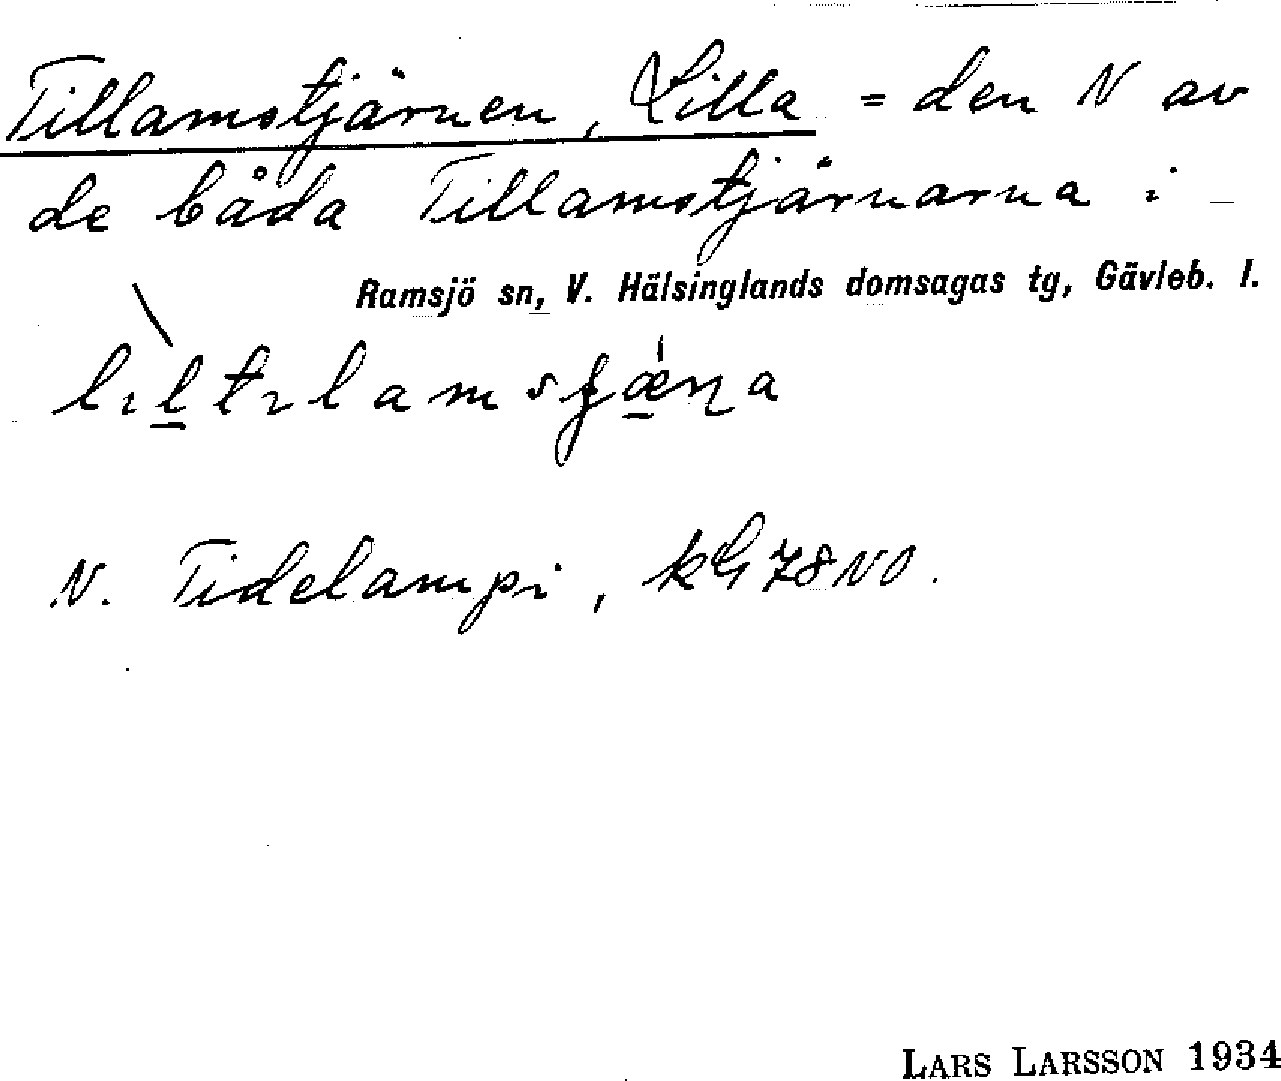 Tillamstjärnen, Lilla = den N av
de båda Tillamstjärnarna i
Ramsjö sn, V. Hälsinglands domsagas tg, Gävleb. l.
N. Tidelampi, kG 78 NO.
LARS LARSSON 1934